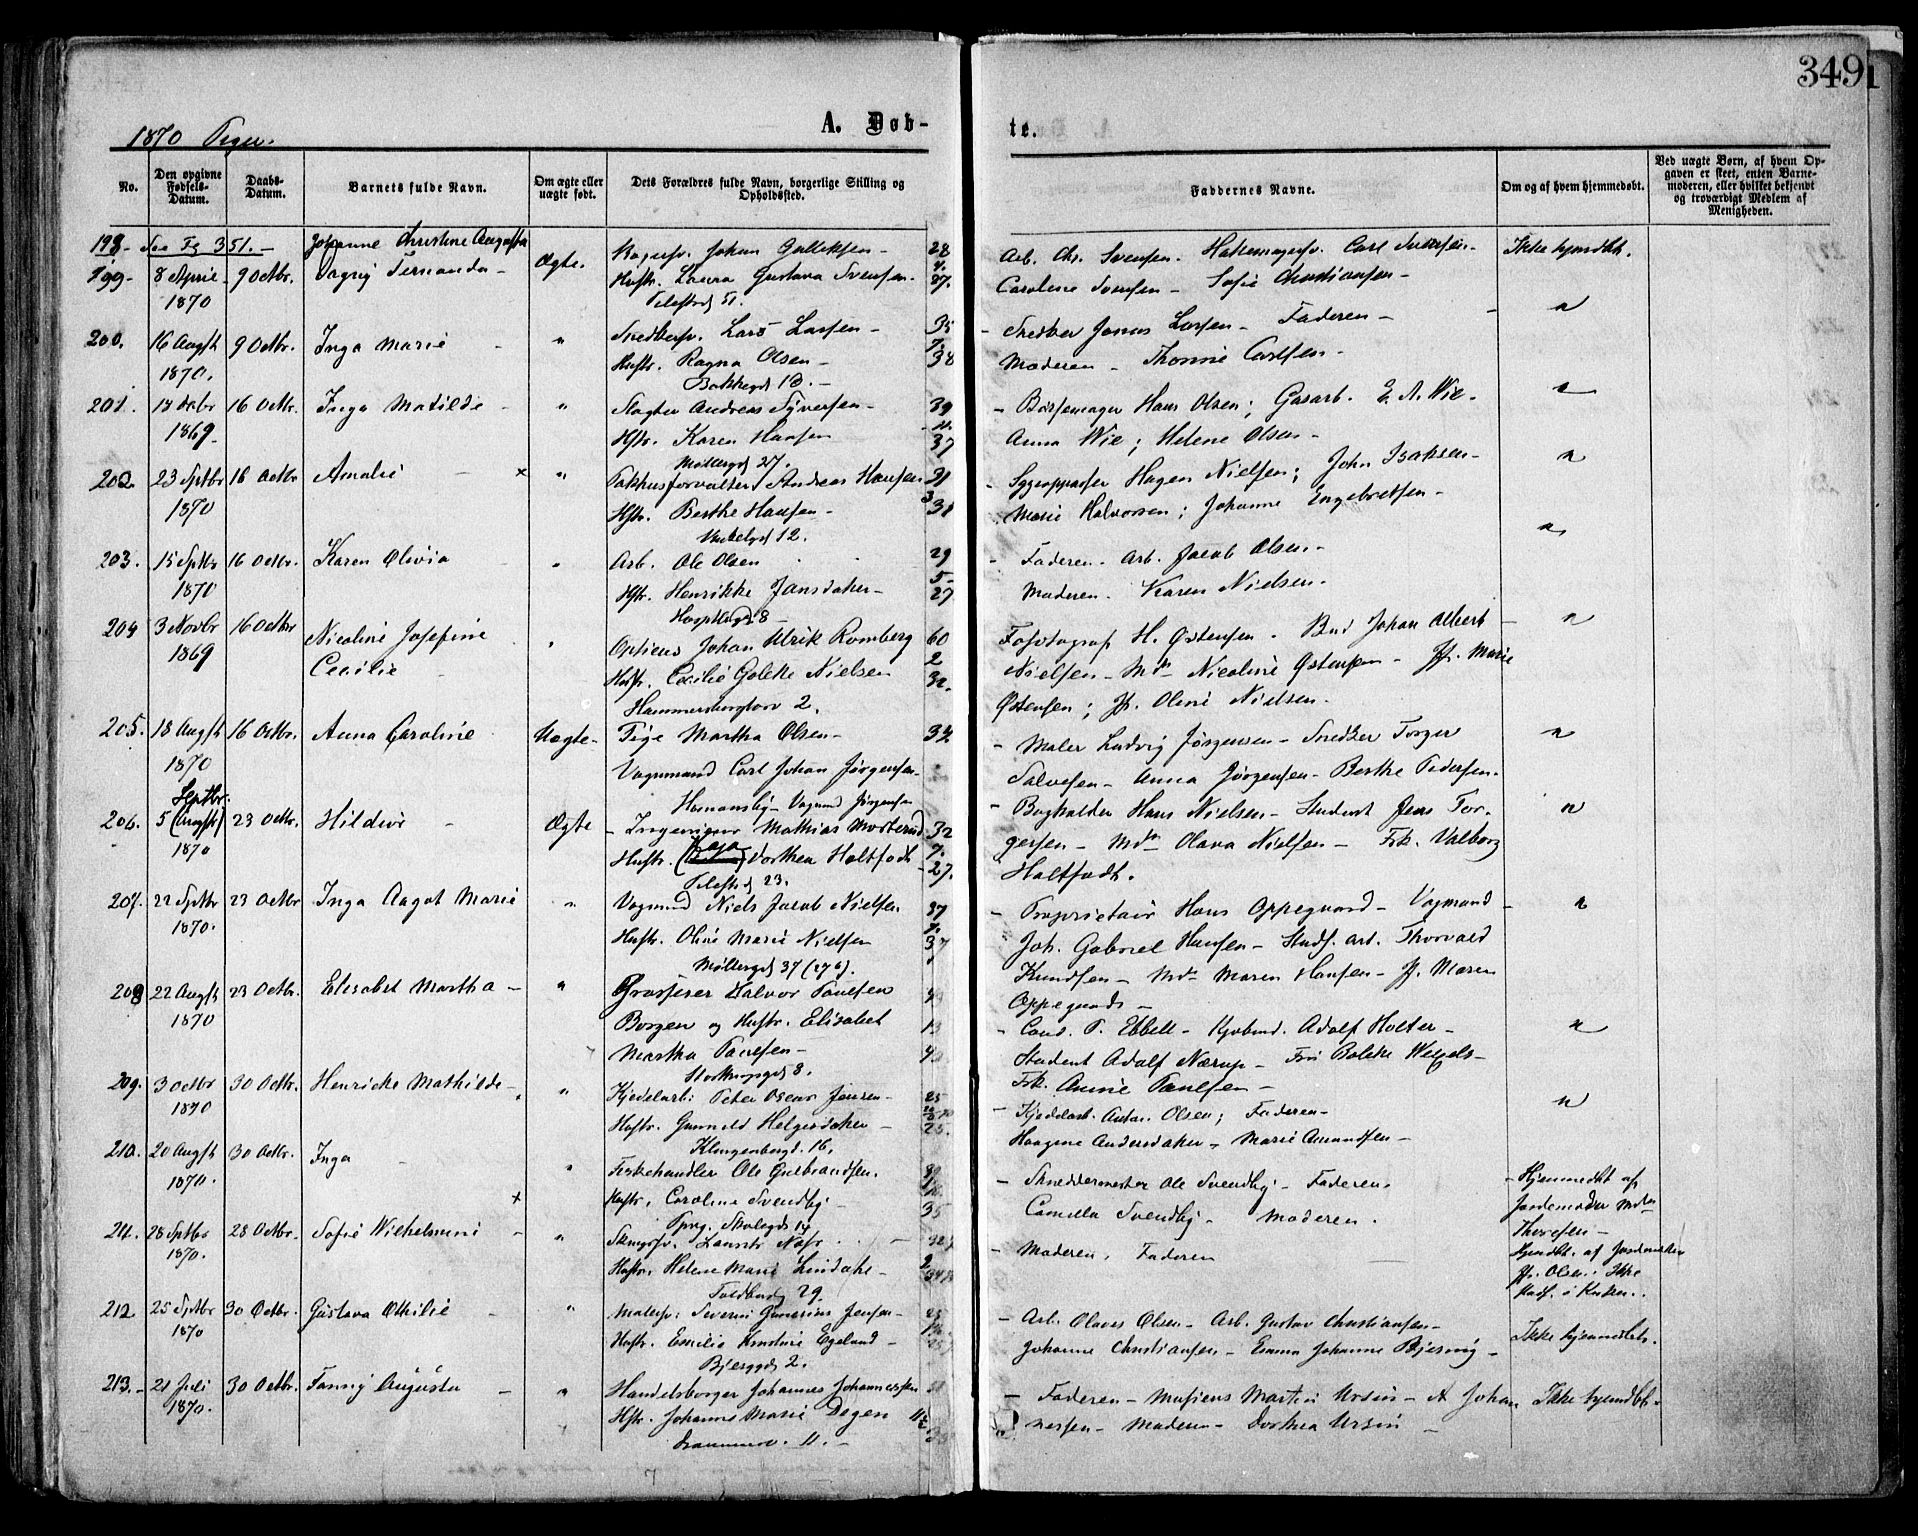 349
1870 Piger.
A. Døb-
te.
No.
Den opgivne Fødsels-Datum.
Daabs-Datum.
Barnets fulde Navn.
Om ægte eller uægte født.
Dets Forældres fulde Navn, borgerlige Stilling og Opholdssted.
Faddernes Navne.
Om og af hvem hjemmedøbt.
Ved uægte Børn, af hvem Opgaven er skeet, enten Barnemoderen, eller hvilket bekjendt og troværdigt Medlem af Menigheden.
198. See Fg 351.
Johanne Christine Augusta
199. 8 April 1870 9 Octbr. Dagny Fernanda Ægte.
Johan Gulliksen 28
Hustr. Laura Gustava Svensen 27.
Pilestrd 51.
Arb. Chr. Svensen. Hattemagersv. Carl Svensen
Caroline Svensen - Sofie Christiansen -
Ikke hjemdbt.
200. 16 Augst 1870. 9 Octbr. Inga Marie "
Snedkersv. Lars Larsen - 35
7.
Hustr. Ragna Olsen - 38
Bakkegd 13. -
- Snedker Jonas Larsen - Faderen -
Moderen - Thomine Carlsen -
n
201. 14 Decbr 1869. 16 Octbr. Inga Matilde "
Slagter Andreas Syversen - 39
11.
Hstr. Karen Hansen 37
Møllergd 27.
- Børsemager Hans Olsen; Gasarb. E. A. Wie -
Anna Wie; Helene Olsen -
n
202. 23 Septbr 1870 16 Octbr Amalie x "
Pakhusforvalter Andreas Hansen 31
3
Hstr. Berthe Hansen - 31
12.
- Sygepasser Hagen Nielsen; John Isaksen -
Marie Halvorsen; Johanne Engebretsen -
n
203. 15 Septbr 1870 16 Octbr. Karen Olivia "
Arb. Ole Olsen 29
5
Hstr. Henrikke Jansdatter - 27
Hospitalsgd 8
- Faderen. Arb. Jacob Olsen -
Moderen. Karen Nielsen.
n
204 3 Novbr 1869 16 Octbr Nicoline Josefine
Cecilie "
Opticus Johan Ulrik Romberg 60
2
Hustr. Cecilie Golette Nielsen 32.
Hammersborgtorv 2.
Fotograf H. Østensen. Bud Johan Albert
Nielsen - Mdm Nicoline Østensen - Jfr. Marie
Østensen; Jfr. Oline Nielsen -
n
205. 18 Augst 1870 16 Octbr. Anna Caroline Uægte -
Pige Martha Olsen - 34
Vognmand Carl Johan Jørgensen -
Homansby - Vognmd Jørgensen
- Maler Ludvig Jørgensen - Snedker Torger
Salvesen - Anna Jørgensen - Berthe Pedersen.
n
206. Septbr. 5 (Augst) 1870 23 Octbr. Hildur Ægte
- Ingeniør Mathias Mosterud 32
7.
Hustr. Dorthea Holtfodt - 27.
Pilestrd 23.
- Bogholder Hans Nielsen - Student Jens Tor-
gersen - Mdm Olava Nielsen - Frk. Valborg
Holtfodt.
n
207. 22 Septbr 1870. 23 Octbr Inga Aagot Marie "
Vognmd Niels Jacob Nielsen 37
7.
Hustr. Oline Marie Nielsen 37
Møllergd 37 (276).
- Proprietair Hans Oppegaard - Vognmand
Joh. Gabriel Hansen - Stud. art. Thorvald
Knudsen - Mdm Maren Hansen - Jfr. Maren
Oppegaard -
n
208 22 Augst 1870 23 Octbr. Elisabet Martha - "
Grosserer Halvor Paulsen
Borgen og Hustr. Elisabet 13
Martha Paulsen - 40
Storthingsgd 8.
- Cons. P. Ebbell - Kjøbmd. Adolf Holter -
Student Adolf Nærup - Fru Bolette Wessels -
Frk. Annie Paulsen -
n
209. 3 Octbr 1870 30 Octbr. Henricke Mathilde "
Kjedelarb. Peter Oscar Jensen - 25
Hustr. Gunnild Helgesdatter - 25.
Klingenberggd. 16.
- Kjedelarb. Anton Olsen; Faderen -
Haagine Andersdatter - Marie Amundsen -
n
210. 20 Augst 1870. 30 Octbr. Inga x "
Fiskehandler Ole Gulbrandsen.
Hustr. Caroline Svendby - 35
Skolegd 14
- Skreddermester Ole Svendby - Faderen.
Camilla Svendby - Moderen.
- Hjemmedbt af
Jordemoder Mdm
211. 28 Septbr 1870. 28 Octbr. Sofie Wilhelmine - "
Lauritz Næss - 32
2
Hustr. Helene Marie Lindahl -
29.
- Moderen. Faderen
Hjemdbt. af Jordemoder
Jfr. Olsen. Ikke
stadf. i Kirken.
212. 25 Septbr 1870 30 Octbr. Gustava Othilie - "
Malersv. Severin Gunerius Jensen - 25
Hustr. Emilie Kristine Egeland -
Bjerggd 2.
- Arb. Olaves Olsen - Arb. Gustav Christiansen -
Johanne Christiansen - Emma Johanne Bjering -
Ikke hjemmdbt.
213. - 21 Juli 1870. 30 Octbr. Fanny Augusta - "
Handelsborger Johannes Johannessen
Hstr. Johanne Marie Degen
11. -
- Faderen - Martin Ursin - A Johan-
nessen - Moderen - Dorthea Ursin -
Ikke hjemdbt.